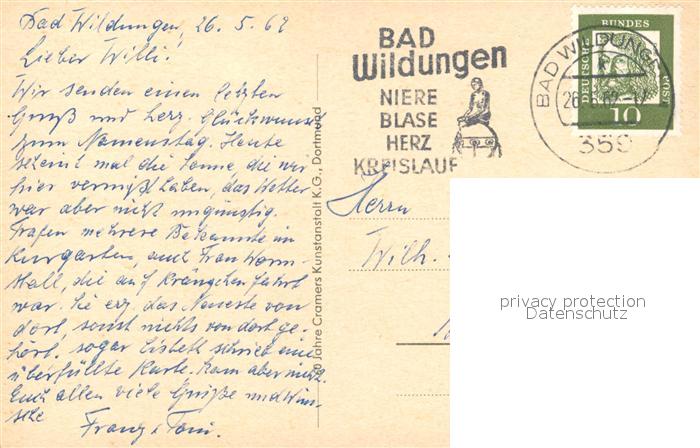 Bad Wildungen, 26.5.62
Lieber Willi!
Wir senden einen letzten
Gruß und herz. Glückwunsch
zum Namenstag. Heute
scheint mal die Sonne die wir
hier vermißt haben, das Wetter
war aber nicht ungünstig.
Trafen mehrere Bekannte im
Kurgarten, auch Frau
die auf Kränzchen fahrt
war. Sie erz. das Neueste von
dort, sonst nichts von dort ge-
hört. sogar Lisbeth schrieb eine
überfüllte Karte. kam aber nicht.
Euch allen viele Grüße und Wün-
sche
Franz u. Toni.
30 Jahre Cramers Kunstanstalt K.G., Dortmund
BAD
Wildungen
NIERE
BLASE
HERZ
KREISLAUF
BAD WILDUNGEN
26.5.62
359
DEUTSCHE
BUNDES
POST
10
Herrn
Wilh.
privacy protection
Datenschutz